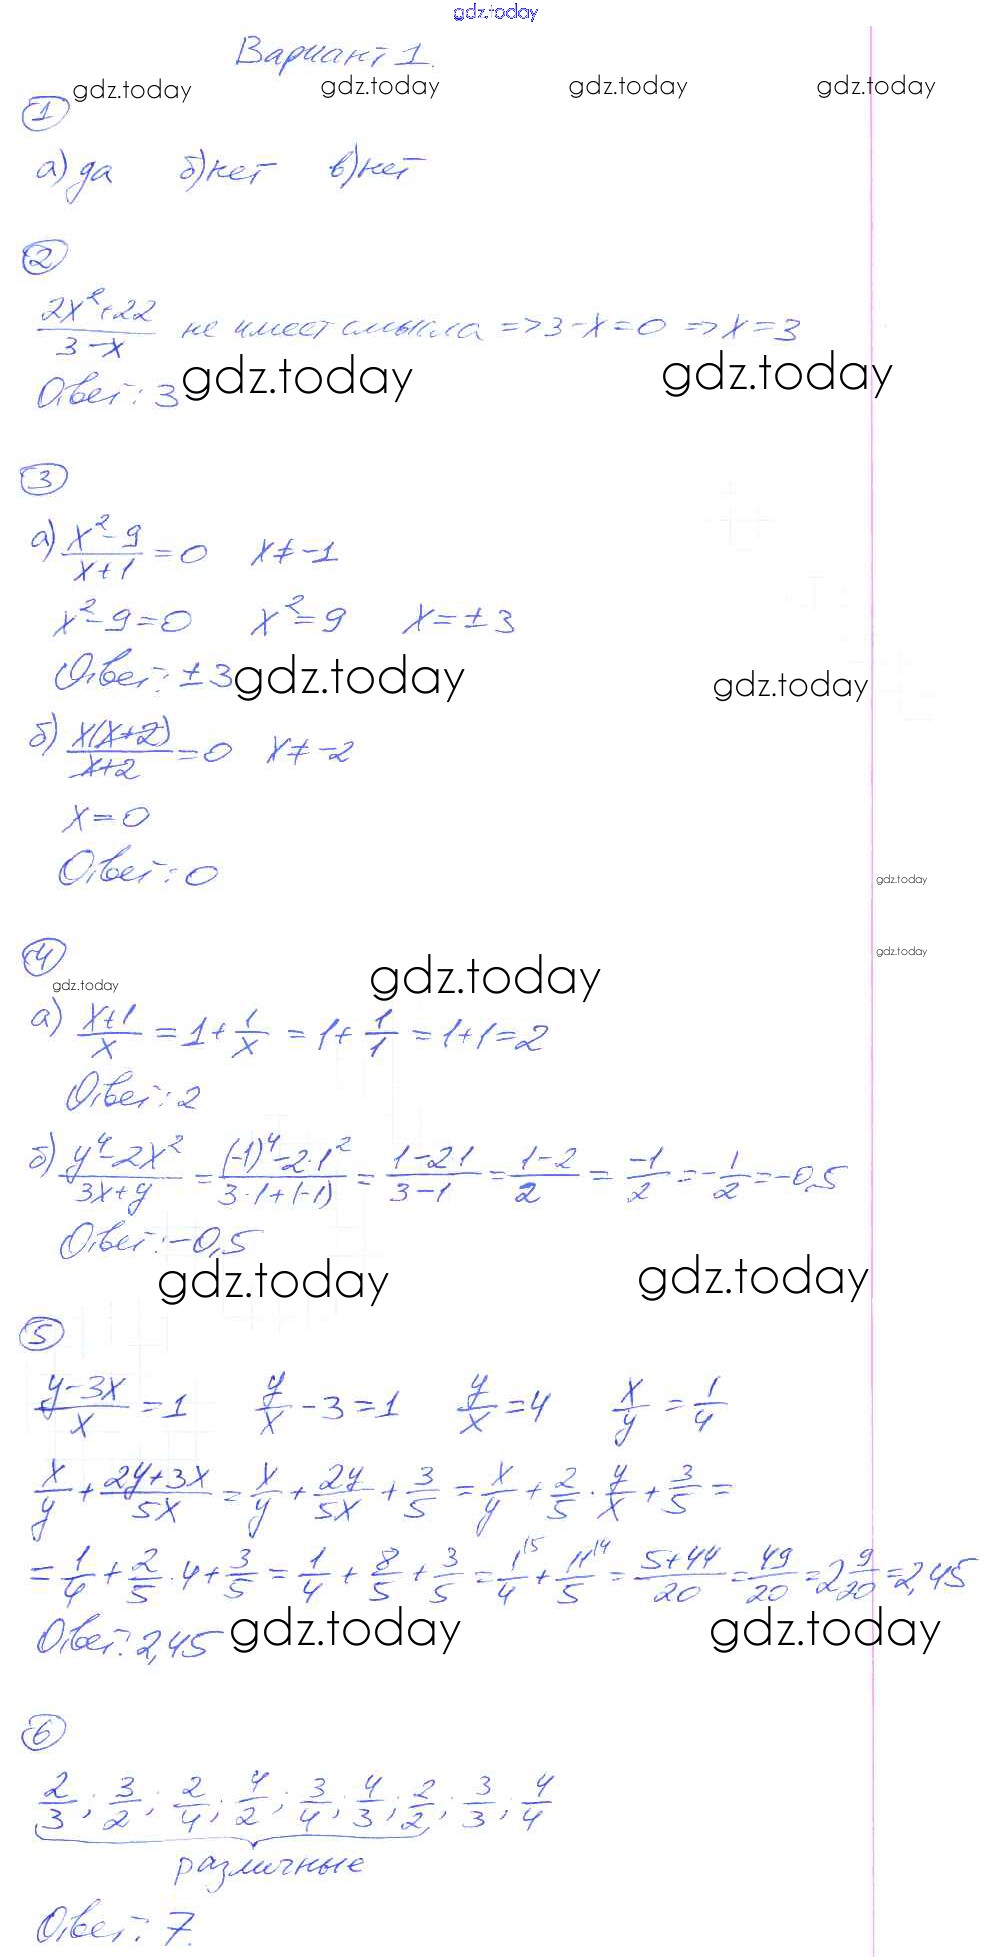 gdz.today
Вариант 1.
gdz.today gdz.today gdz.today gdz.today
1
а) да б) нет в) нет
2
(2x²+22)/(3-x) не имеет смысла => 3-x=0 => x=3
Ответ: 3 gdz.today gdz.today
3
а) (x²-9)/(x+1) = 0 x≠-1
x²-9=0 x²=9 x=±3
Ответ: ±3 gdz.today gdz.today
б) x(x+2)/(x+2) = 0 x≠-2
x=0
Ответ: 0
gdz.today
4 gdz.today gdz.today
gdz.today
а) (x+1)/x = 1+1/x = 1+1/1 = 1+1=2
Ответ: 2
б) (y⁴-2x²)/(3x+y) = ((-1)⁴-2·1²)/(3·1+(-1)) = (1-2·1)/(3-1) = (1-2)/2 = -1/2 = -1/2 = -0,5
Ответ: -0,5
gdz.today gdz.today
5
(y-3x)/x = 1 y/x - 3 = 1 y/x = 4 x/y = 1/4
x/y + (2y+3x)/5x = x/y + 2y/5x + 3/5 = x/y + 2/5 · y/x + 3/5 =
= 1/4 + 2/5 · 4 + 3/5 = 1/4 + 8/5 + 3/5 = 1/4 \5 + 11/5 \4 = (5+44)/20 = 49/20 = 2 9/20 = 2,45
Ответ: 2,45 gdz.today gdz.today
6
2/3; 3/2; 2/4; 4/2; 3/4; 4/3; 2/2; 3/3; 4/4
различные
Ответ: 7.